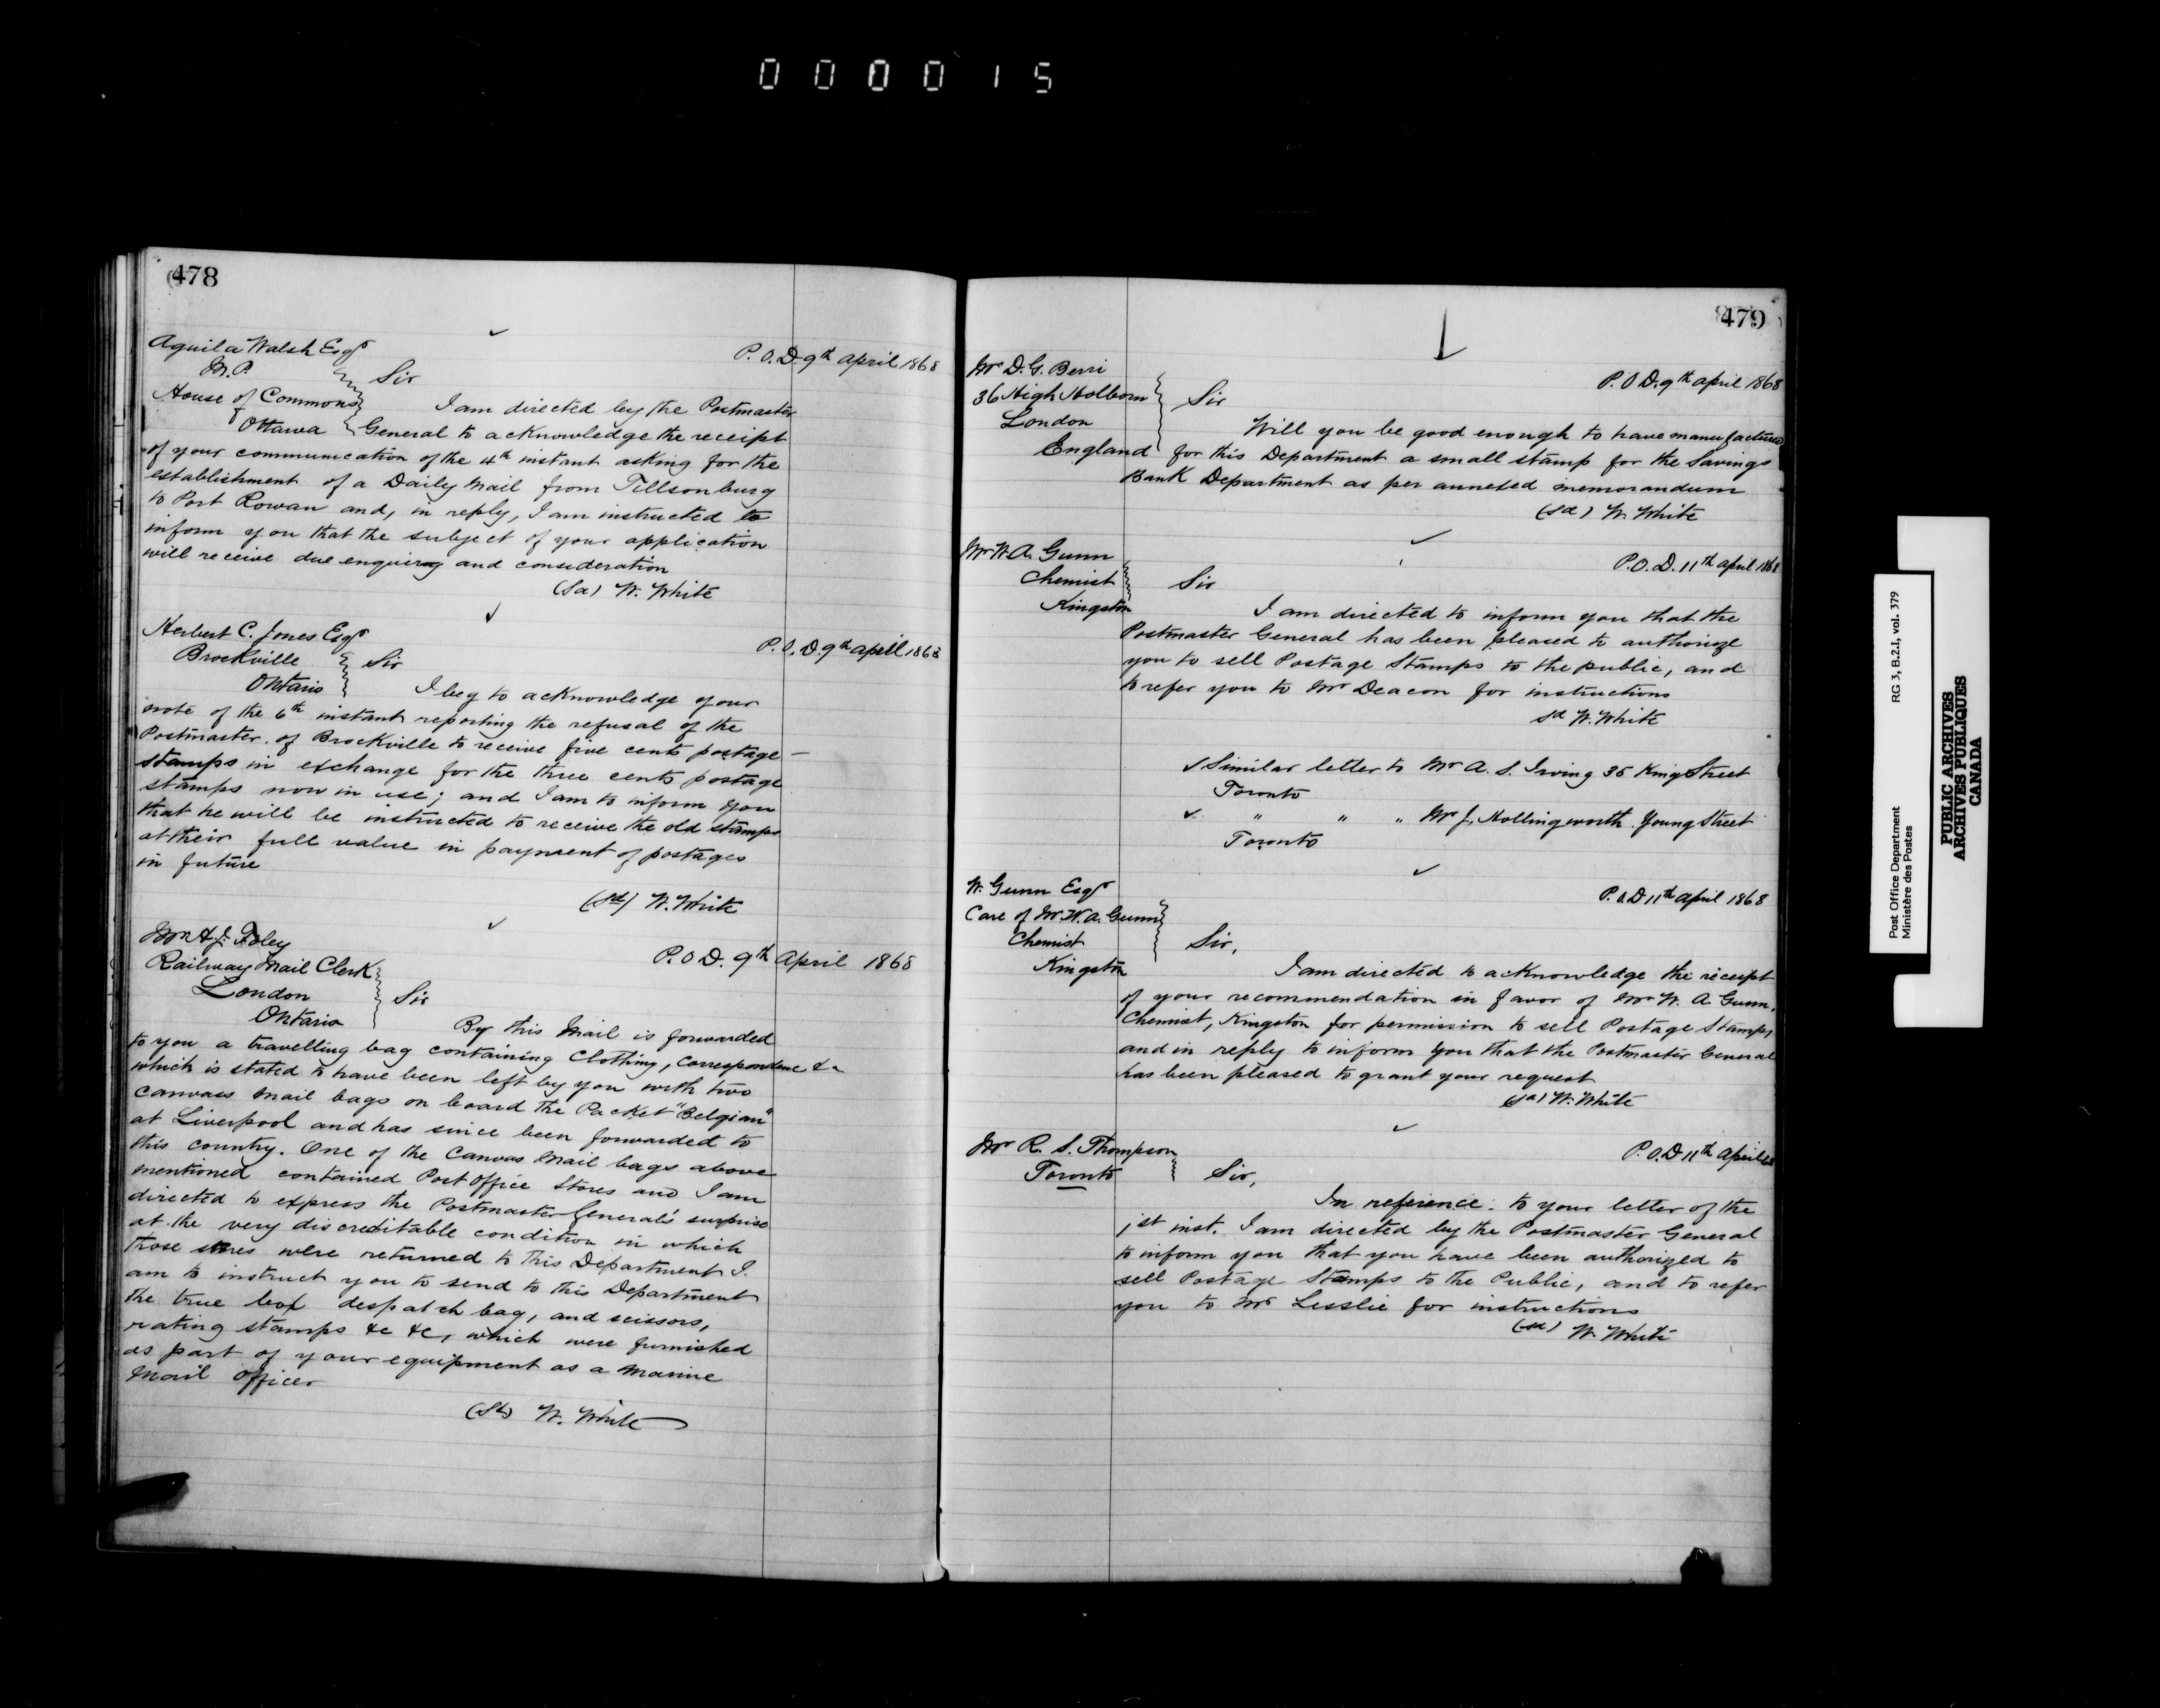 000015
478
Aquila Walsh Esqr
M.P.
House of Commons
Ottawa
P.O.D. 9th April 1868
Sir
I am directed by the Postmaster
General to acknowledge the receipt
of your communication of the 4th instant asking for the
establishment of a Daily Mail from Tillsonburg
to Port Rowan and, in reply, I am instructed to
inform you that the subject of your application
will receive due enquiry and consideration
(Sd) W. White
Herbert C. Jones Esqr
Brockville
Ontario
P.O.D. 9th April 1868
Sir
I beg to acknowledge your
note of the 6th instant reporting the refusal of the
Postmaster of Brockville to receive five cents postage
stamps in exchange for the three cents postage
stamps now in use; and I am to inform you
that he will be instructed to receive the old stamps
at their full value in payment of postages
in future
(Sd) W. White
Mr A. J. Foley
Railway Mail Clerk
London
Ontario
P.O.D. 9th April 1868
Sir
By this Mail is forwarded
to you a travelling bag containing Clothing, Correspondence &c
which is stated to have been left by you with two
Canvass Mail bags on board the Packet "Belgian"
at Liverpool and has since been forwarded to
this country. One of the Canvas Mail bags above
mentioned contained Post Office Stores and I am
directed to express the Postmaster General's surprise
at the very discreditable condition in which
those stores were returned to this Department I
am to instruct you to send to this Department
the box despatch bag, and scissors,
rating stamps &c &c, which were furnished
as part of your equipment as a Marine
Mail Officer
(Sd) W. White
479
Mr D. G. Berri
36 High Holborn
London
England
P.O.D. 9th April 1868
Sir
Will you be good enough to have manufactured
for this Department a small stamp for the Savings
Bank Department as per annexed memorandum
(sd) W. White
Mr W. A. Gunn
Chemist
Kingston
P.O.D. 11th April 1868
Sir
I am directed to inform you that the
Postmaster General has been pleased to authorize
you to sell Postage Stamps to the public, and
to refer you to Mr Deacon for instructions
sd W. White
Similar letter to Mr A. S. Irving 35 King Street
Toronto
" " " Mr J. Hollingworth Young Street
Toronto
W. Gunn Esqr
Care of Mr W. A. Gunn
Chemist
Kingston
P.O.D 11th April 1868
Sir,
I am directed to acknowledge the receipt
of your recommendation in favor of Mr W. A. Gunn,
Chemist, Kingston for permission to sell Postage Stamps,
and in reply to inform you that the Postmaster General
has been pleased to grant your request
(sd) W. White
Mr R. S. Thompson
Toronto
P.O.D 11th April 68
Sir,
In reference to your letter of the
1st inst. I am directed by the Postmaster General
to inform you that you have been authorized to
sell Postage Stamps to the Public, and to refer
you to Mr Lesslie for instructions
(sd) W. White
Post Office Department
Ministère des Postes
RG 3, B.2.1, vol. 379
PUBLIC ARCHIVES
ARCHIVES PUBLIQUES
CANADA